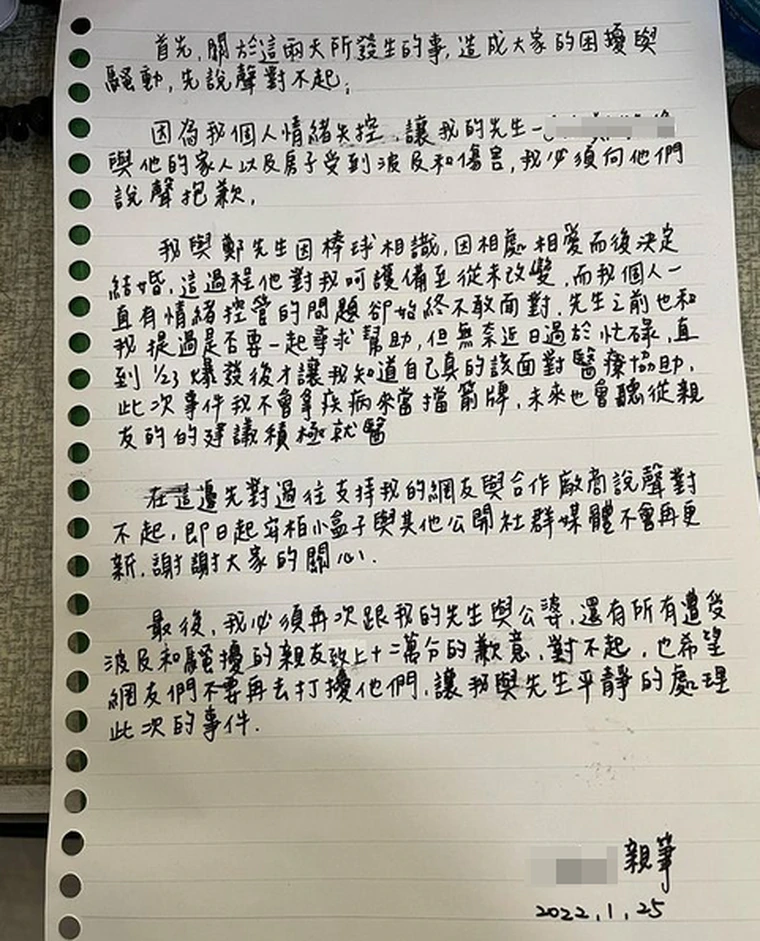 首先,關於這兩天所發生的事,造成大家的困擾與
騷動,先說聲對不起,
因為我個人情緒失控,讓我的先生一
與他的家人以及房子受到波及和傷害,我必須向他們
說聲抱歉,
我與鄭先生因棒球相識,因相處相愛而後決定
結婚,這過程他對我呵護備至從未改變,而我個人一
直有情緒控管的問題卻始終不敢面對,先生之前也和
我提過是否要一起尋求幫助,但無奈近日過於忙碌,直
到1/23爆發後才讓我知道自己真的該面對醫療協助,
此次事件我不會拿疾病來當擋箭牌,未來也會聽從親
友的的建議積極就醫
在這邊先對過往支持我的網友與合作廠商說聲對
不起,即日起宥柏小盒子與其他公開社群媒體不會再更
新,謝謝大家的關心.
最後,我必須再次跟我的先生與公婆,還有所有遭受
波及和騷擾的親友致上十二萬分的歉意,對不起,也希望
網友們不要再去打擾他們,讓我與先生平靜的處理
此次的事件.
親筆
2022,1,25